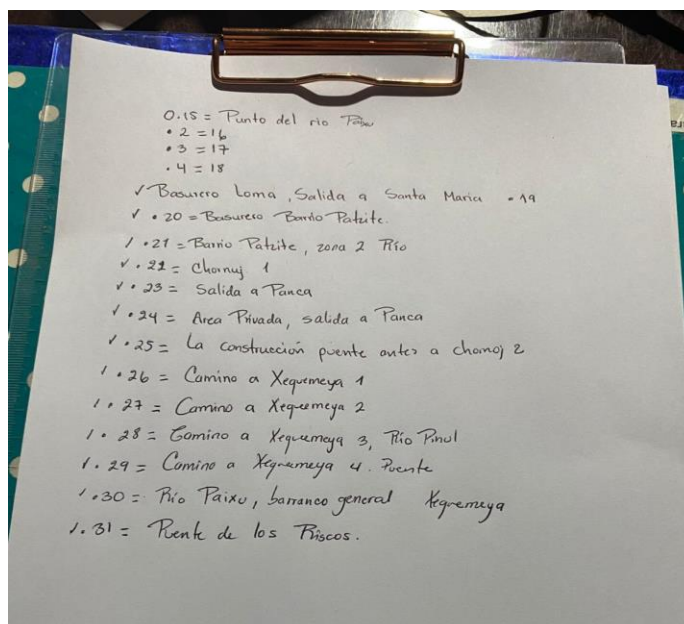 0.15 = Punto del rio Paixu
• 2 = 16
• 3 = 17
. 4 = 18
✓ Basurero Loma, Salida a Santa Maria • 19
✓ • 20 = Basurero Barrio Patzite.
/ • 21 = Barrio Patzite, zona 2 Río
✓ • 22 = Chomuj 1
✓ • 23 = Salida a Panca
✓ • 24 = Area Privada, salida a Panca
✓ • 25 = La construcción puente antes a chomoj 2
/ • 26 = Camino a Xequemeya 1
/ • 27 = Camino a Xequemeya 2
/ • 28 = Camino a Xequemeya 3, Río Pinul
/ • 29 = Camino a Xequemeya 4. Puente
/ • 30 = Río Paixu, barranco general Xequemeya
/ • 31 = Puente de los Riscos.